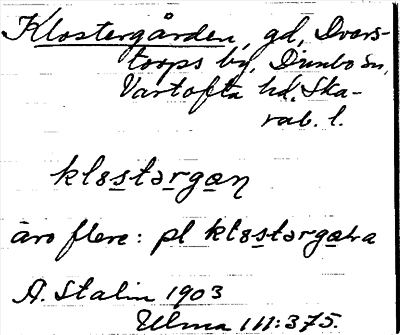 Klostergården, gd, Dvers-
torps by, Dimbo sn,
Vartofta hd, Ska-
rab. l.
klostərgan
äro flere: pl klostərgaɳa
A. Stalin 1903
Ulma 111:375.